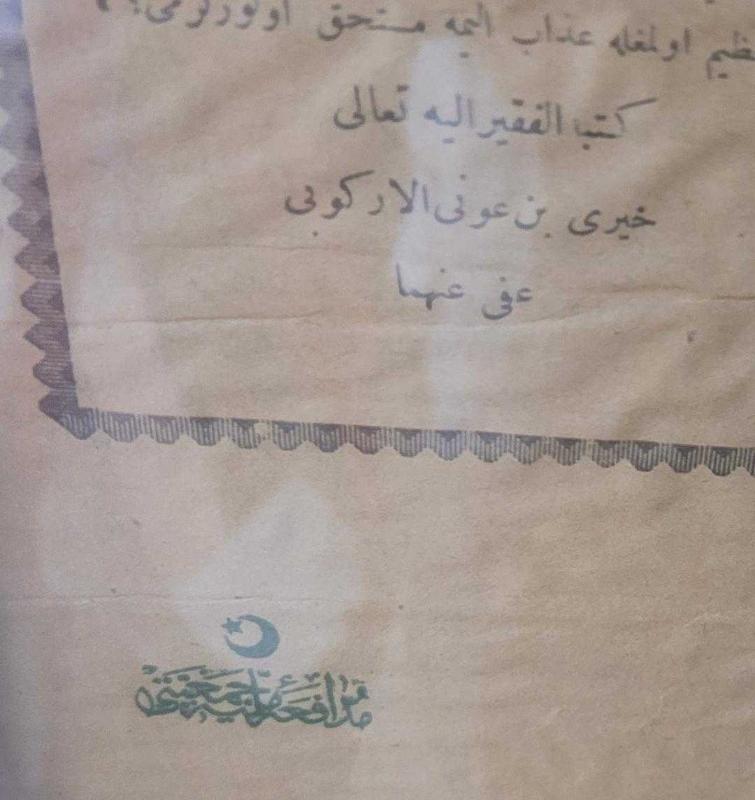 عظيم اولمغله عذاب اليمه مستحق اولورلرمى؟
كتبه الفقير اليه تعالى
خيرى بن عونى الاركوبى
عفى عنهما
مدافعۀ مليه جمعيتى